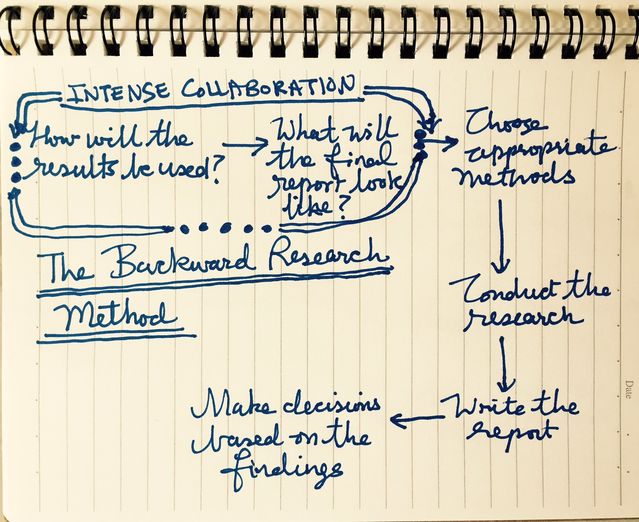 INTENSE COLLABORATION
How will the
results be used?
What will
the final
report look
like?
Choose
appropriate
methods
The Backward Research
Method
Conduct the
research
Write the
report
Make decisions
based on the
findings
Date